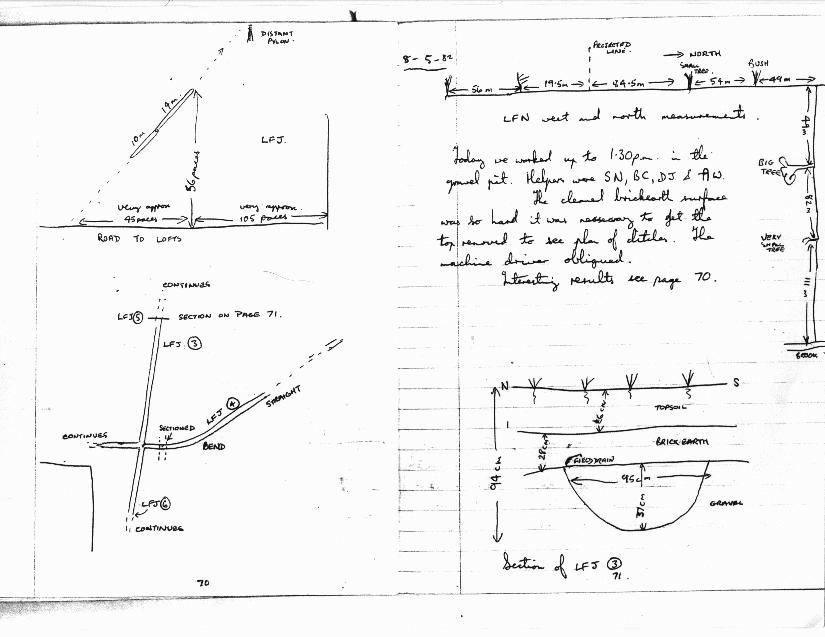 DISTANT
PYLON.
14m
10m
LFJ.
56 paces
very approx
45 paces
very approx.
105 paces
ROAD TO LOFTS
CONTINUES
LFJ⑤ SECTION ON PAGE 71.
LFJ ③
LFJ ④
STRAIGHT
SECTIONED
CONTINUES
BEND
LFJ⑥
CONTINUES
70
8-5-82
PROJECTED
LINE.
→ NORTH
SMALL
TREE.
BUSH
56m
19.5m
84.5m
54m
49m
LFN west and north measurements.
BIG
TREE
VERY
SMALL
TREE
111 m
BROOK
Today we worked up to 1.30pm. in the
gravel pit. Helpers were SN, BC, DJ & AW.
The cleaned brickearth surface
was so hard it was necessary to get the
top removed to see plan of ditches. The
machine driver obliged.
Interesting results see page 70.
N
S
TOPSOIL
BRICKEARTH
28cm
94cm
FIELDDRAIN
95cm
37cm
GRAVEL
Section of LFJ ③
71.